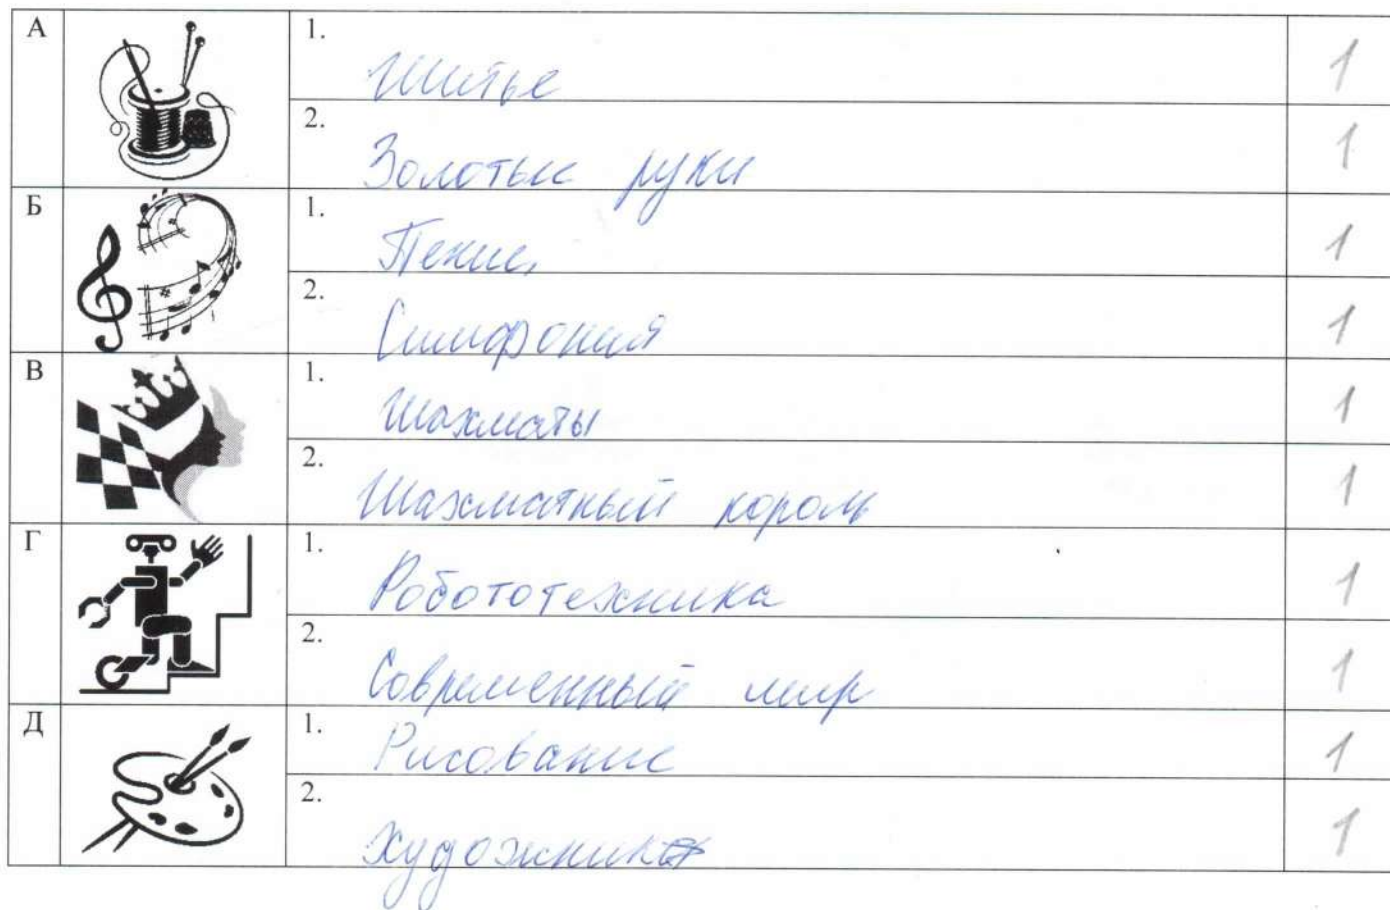 А
1.
Шитье
1
2.
Золотые руки
1
Б
1.
Пение,
1
2.
Симфония
1
В
1.
Шахматы
1
2.
Шахматный король
1
Г
1.
Робототехника
1
2.
Современный мир
1
Д
1.
Рисование
1
2.
Художник
1